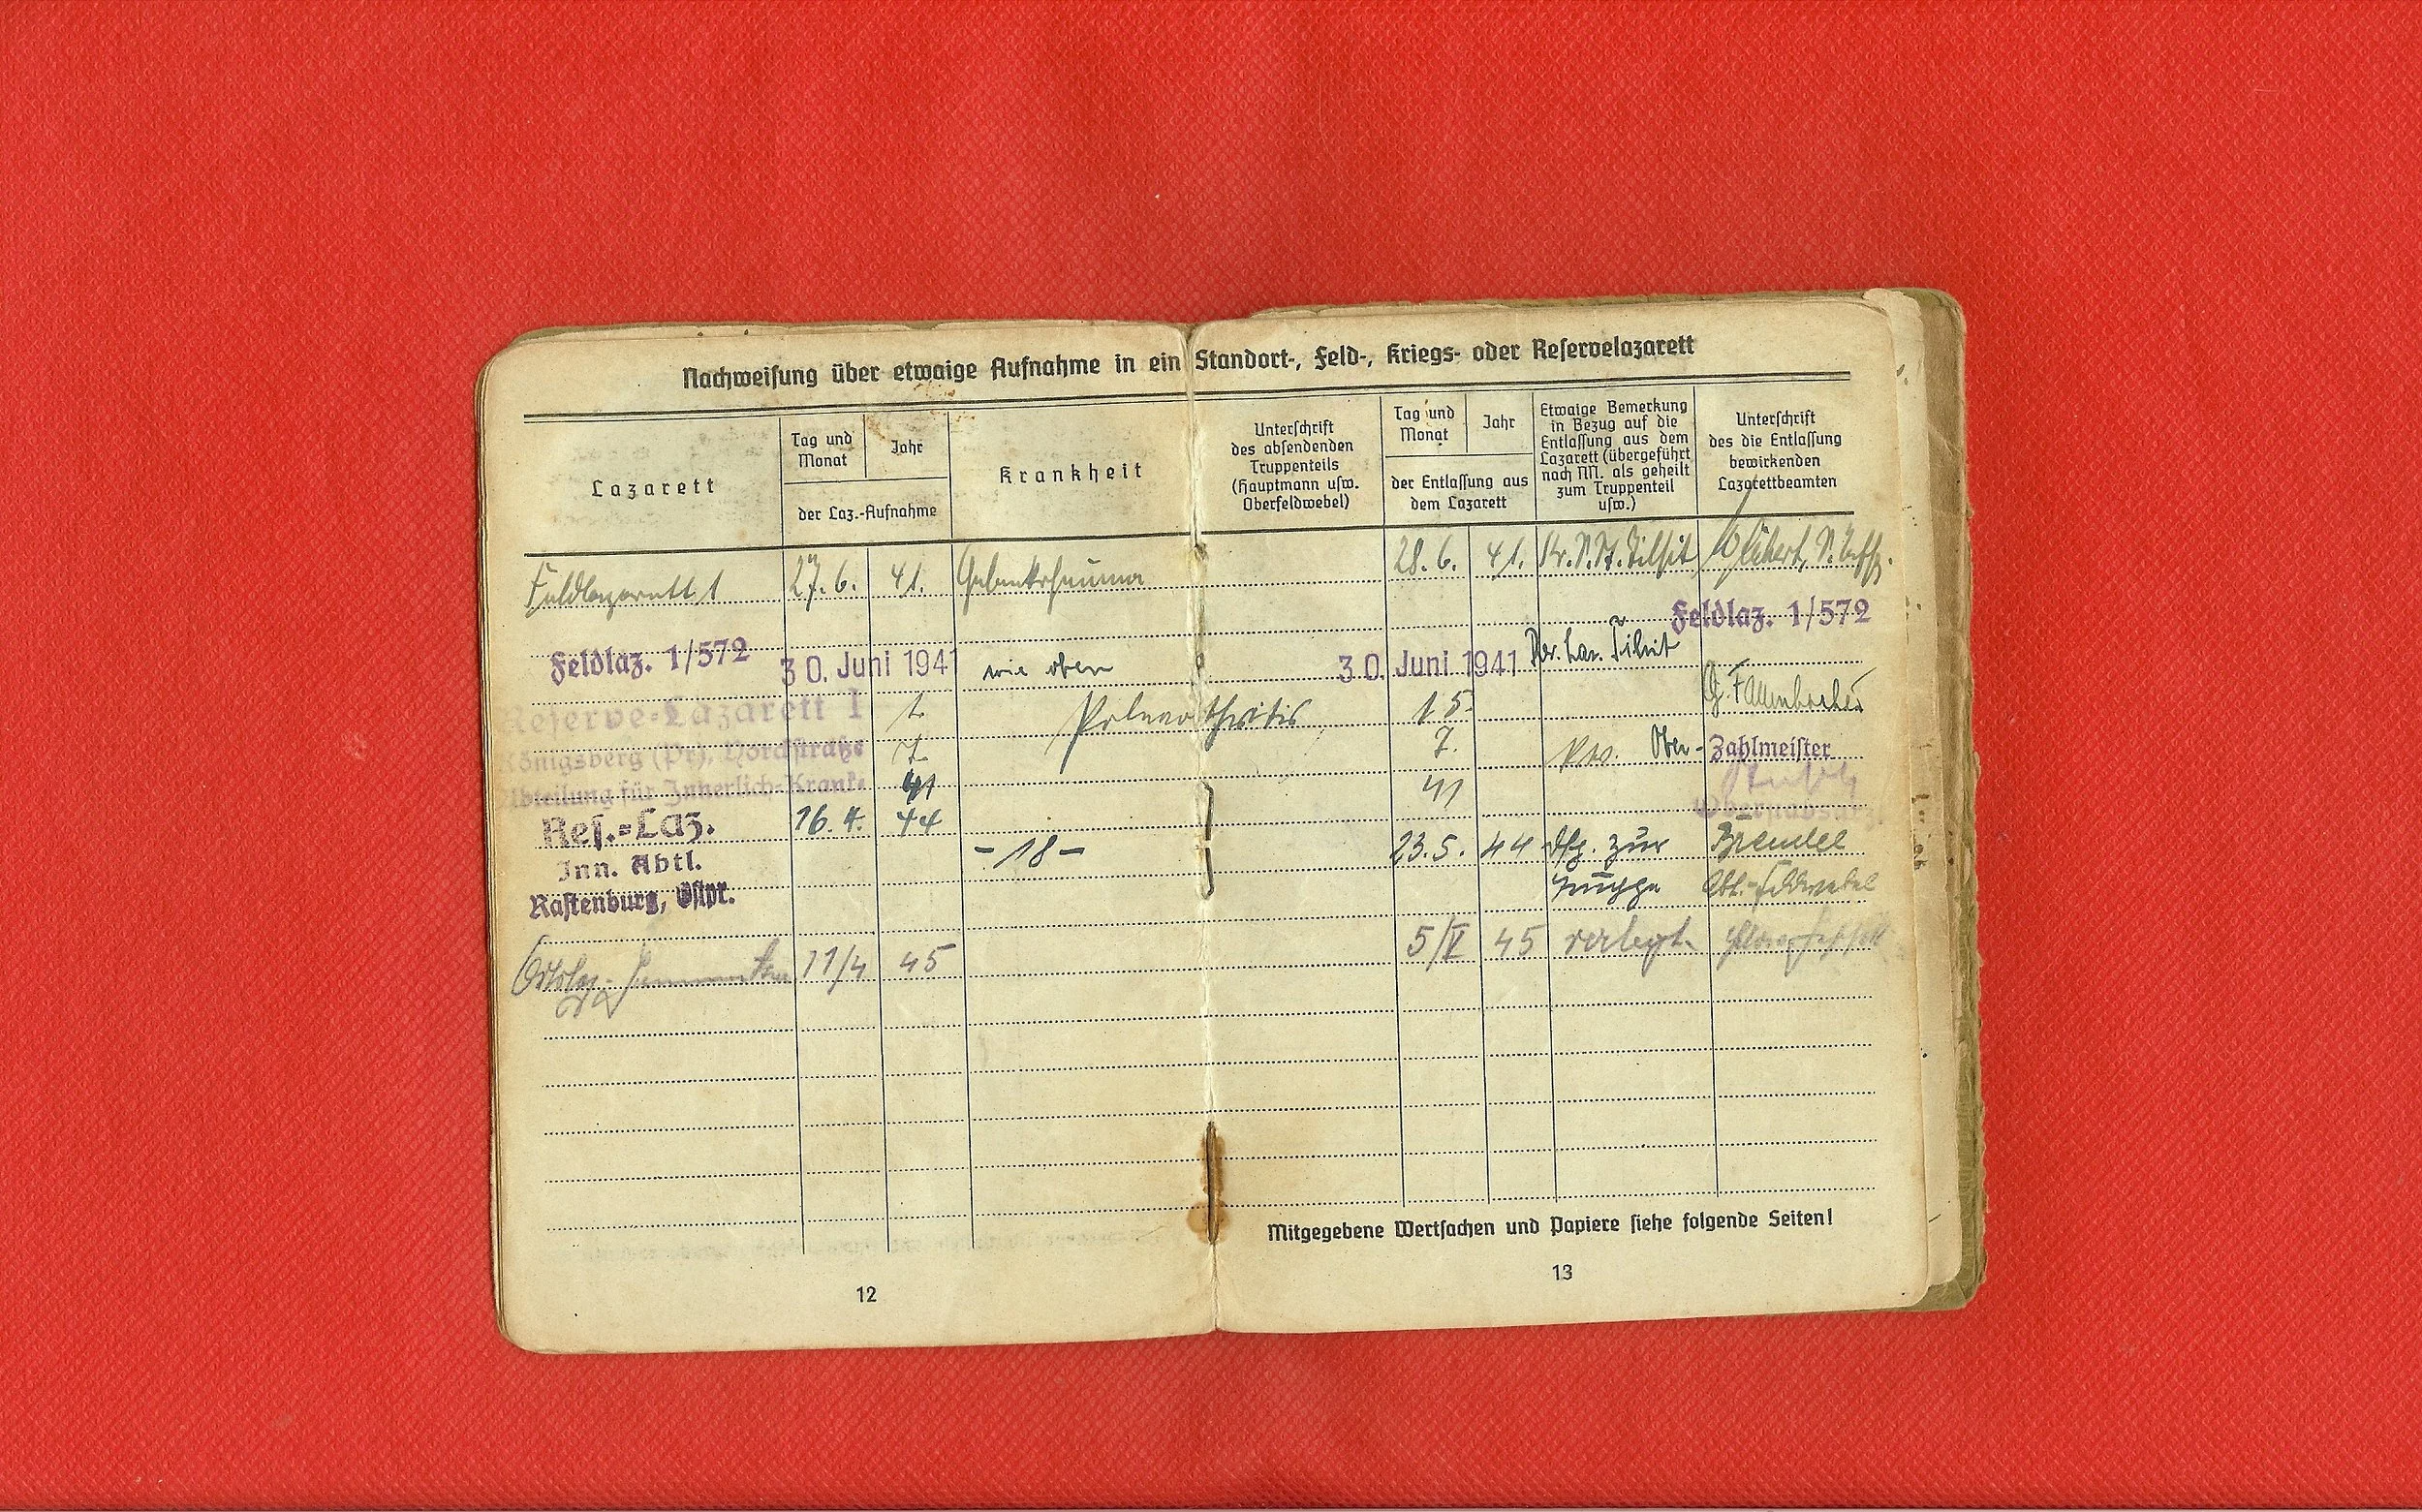 Nachweisung über etwaige Aufnahme in ein Standort-, Feld-, Kriegs- oder Reservelazarett
Lazarett
Tag und
Monat
Jahr
der Laz.-Aufnahme
Krankheit
Unterschrift
des absendenden
Truppenteils
(Hauptmann usw.
Oberfeldwebel)
Tag und
Monat
Jahr
der Entlassung aus
dem Lazarett
Etwaige Bemerkung
in Bezug auf die
Entlassung aus dem
Lazarett (übergeführt
nach NN. als geheilt
zum Truppenteil
usw.)
Unterschrift
des die Entlassung
bewirkenden
Lazarettbeamten
Feldlazarett 1 27.6. 41. Gelenkrheuma 28.6. 41. Tilsit
Feldlaz. 1/572
Feldlaz. 1/572 30. Juni 1941 wie oben 30. Juni 1941 Res. Laz. Tilsit
Reserve-Lazarett I 1. 15.
Königsberg (Pr), Yorckstraße 7. 7. Ober-Zahlmeister
Abteilung für Innerlich-Kranke 41 41
Res.-Laz. 16. 4. 44
Inn. Abtl. -18- 23.5. 44 zur
Rastenburg, Ostpr. Truppe
11/4 45 5/V 45 verlegt.
Mitgegebene Wertsachen und Papiere siehe folgende Seiten!
12
13